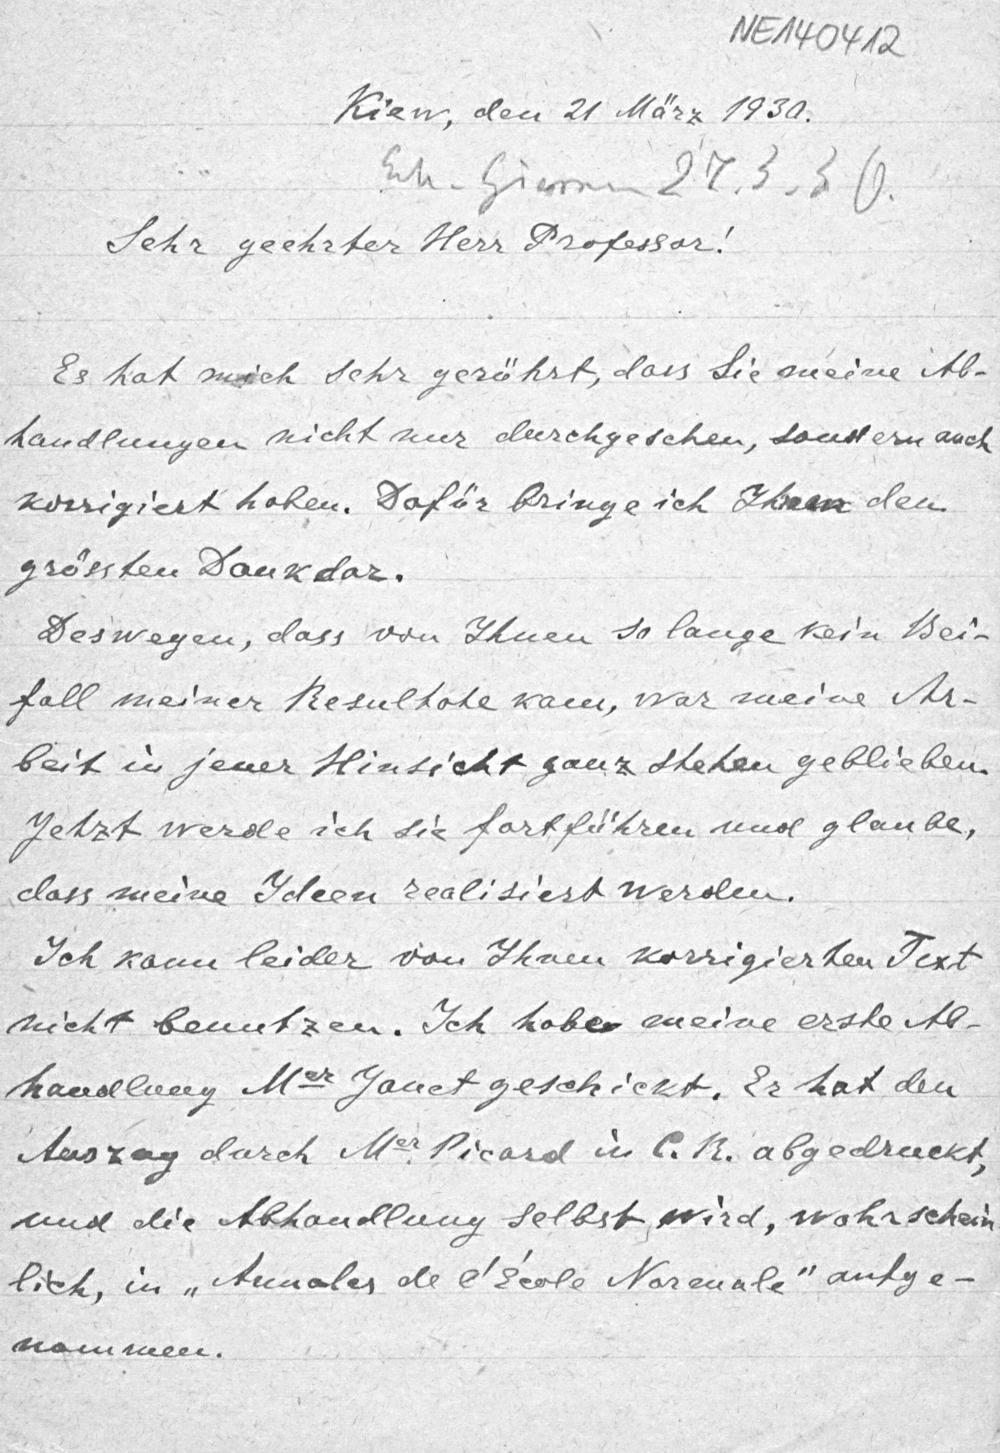 NE140412
Kiew, den 21 März 1930.
27.3.30.
Sehr geehrter Herr Professor!
Es hat mich sehr geröhrt, dass Sie meine Ab-
handlungen nicht nur durchgesehen, sondern auch
korrigiert haben. Dafür bringe ich Ihnen den
grössten Dank dar.
Deswegen, dass von Ihnen so lange kein Bei-
fall meiner Resultate kam, war meine Ar-
beit in jener Hinsicht ganz stehen geblieben.
Jetzt werde ich sie fortführen und glaube,
dass meine Ideen realisiert werden.
Ich kann leider von Ihnen korrigierten Text
nicht benutzen. Ich habe meine erste Ab-
handlung Mer Janet geschickt. Er hat den
Auszug durch Mer Picard in C. R. abgedruckt,
und die Abhandlung selbst wird, wahrschein
lich, in „Annales de l'École Normale" aufge-
nommen.